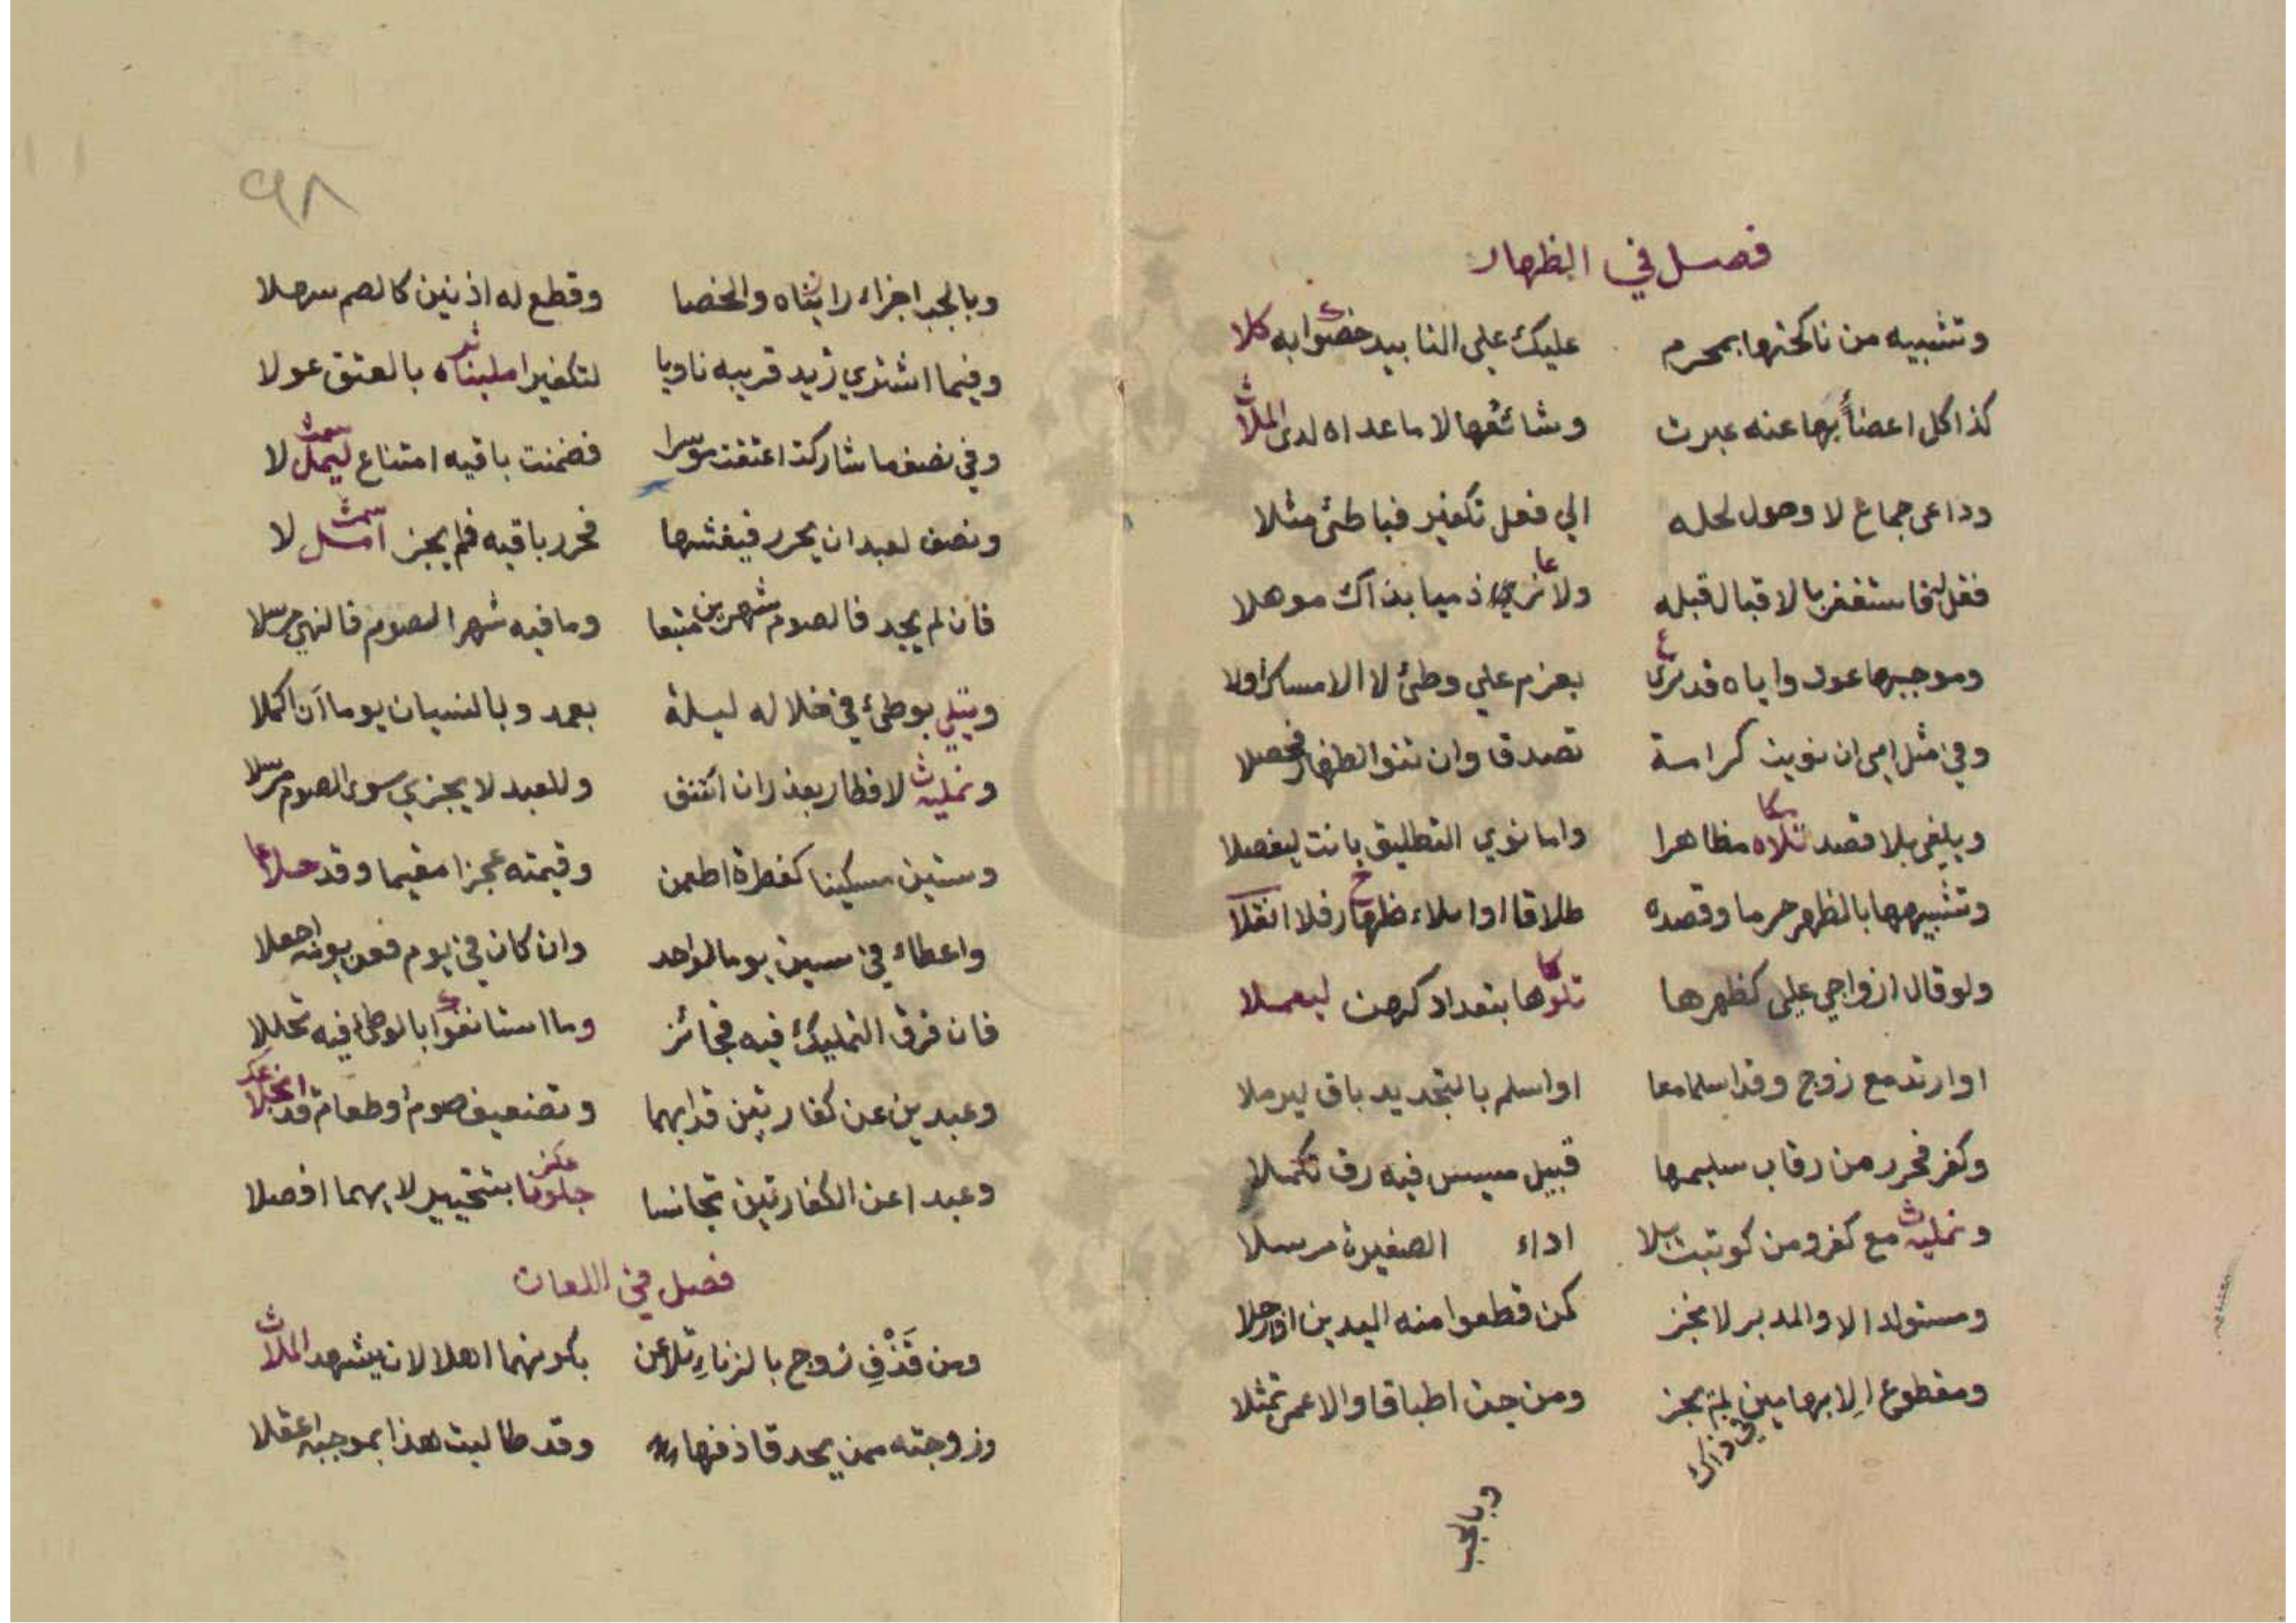 فصل في الظهار
وتشبيه من ناكحتها بمحرم عليك علي التابيد خصوا به كلا
كذا كل اعضاً بها عنه عبرت وشائعها لا ما عداه لدى الملا
وداعى جماع لا وصول لحله الي فعل تكفير فباطئ مثلا
بالاقبال قبله ولا نرى ذميا بذاك موهلا
وموجبها عود واياه قد نرى بعزم علي وطئ لا الامساك اولا
وفي مثل امى ان نويت كراسة تصدقا وان تنو الظهار فحصلا
ويلغى بلا قصد تلاه مظاهرا واما نوي التطليق بانت ليفصلا
وتشبيهها بالظهر حرما وقصده طلاقا او ايلاء ظهار فلا انقلا
ولو قال ازواجي علي كظهرها تلوها بتعداد كرهت ليعملا
او ارتد مع زوج وقد اسلما معا او اسلم بالتجديد باق ليرملا
وكفر فحرر من رقاب سليمها قبيل مسيس فيه رق تكملا
ونمليه مع كفر ومن كوتبت بلا اداء الصغيرة مرسلا
ومستولد الا والمدبر لا نجز كمن قطعوا منه اليدين او ارجلا
ومقطوع الابهامين لم يجز ومن جن اطباقا والاعمى تمثلا
في ذاك
وبالجب
٩٨
وبالجب اجزاء رايناه والخصا وقطع له اذنين كالصم سهلا
وفيما اشتري زيد قريبه ناويا لتكفير امليناه بالعتق عولا
وفي نصف ما شاركت اعتقت موسرا فضمنت باقيه امتناع ليمل لا
ونصف لعبد ان يحرر فيغشها فحرر باقيه فلم يجز امل لا
فان لم يجد فالصوم شهرين متبعا وما فيه شهر الصوم فالنهي مرسلا
ويتلي بوطئ في خلاله ليلة بعمد وبالنسيان يوما آن اكملا
ونمليه لافطار بعذر ان اتفق وللعبد لا يجزي سوى الصوم مرسلا
وستين مسكينا كفطرة اطعمن وقيمته عجزا مقيما وقد حلا
واعطاء في ستين يوما لواحد وان كان في يوم فعن يومه اجعلا
فان فرق التمليك فيه فجائز وما استانفوا بالوطئ فيه تخللا
وعبدين عن كفارتين قد ابهما وتضعيف صوم او طعام قد انجلا
وعبدا عن الكفارتين تجانسا جلوها بتخيير لايهما افصلا
فصل في اللعان
ومن قَذْفِ زوج بالزناءِ تلاعن بكونهما اهلا لان يشهد الملا
وزوجته ممن يحد قاذفها وقد طالبت هذا بموجبه اعقلا